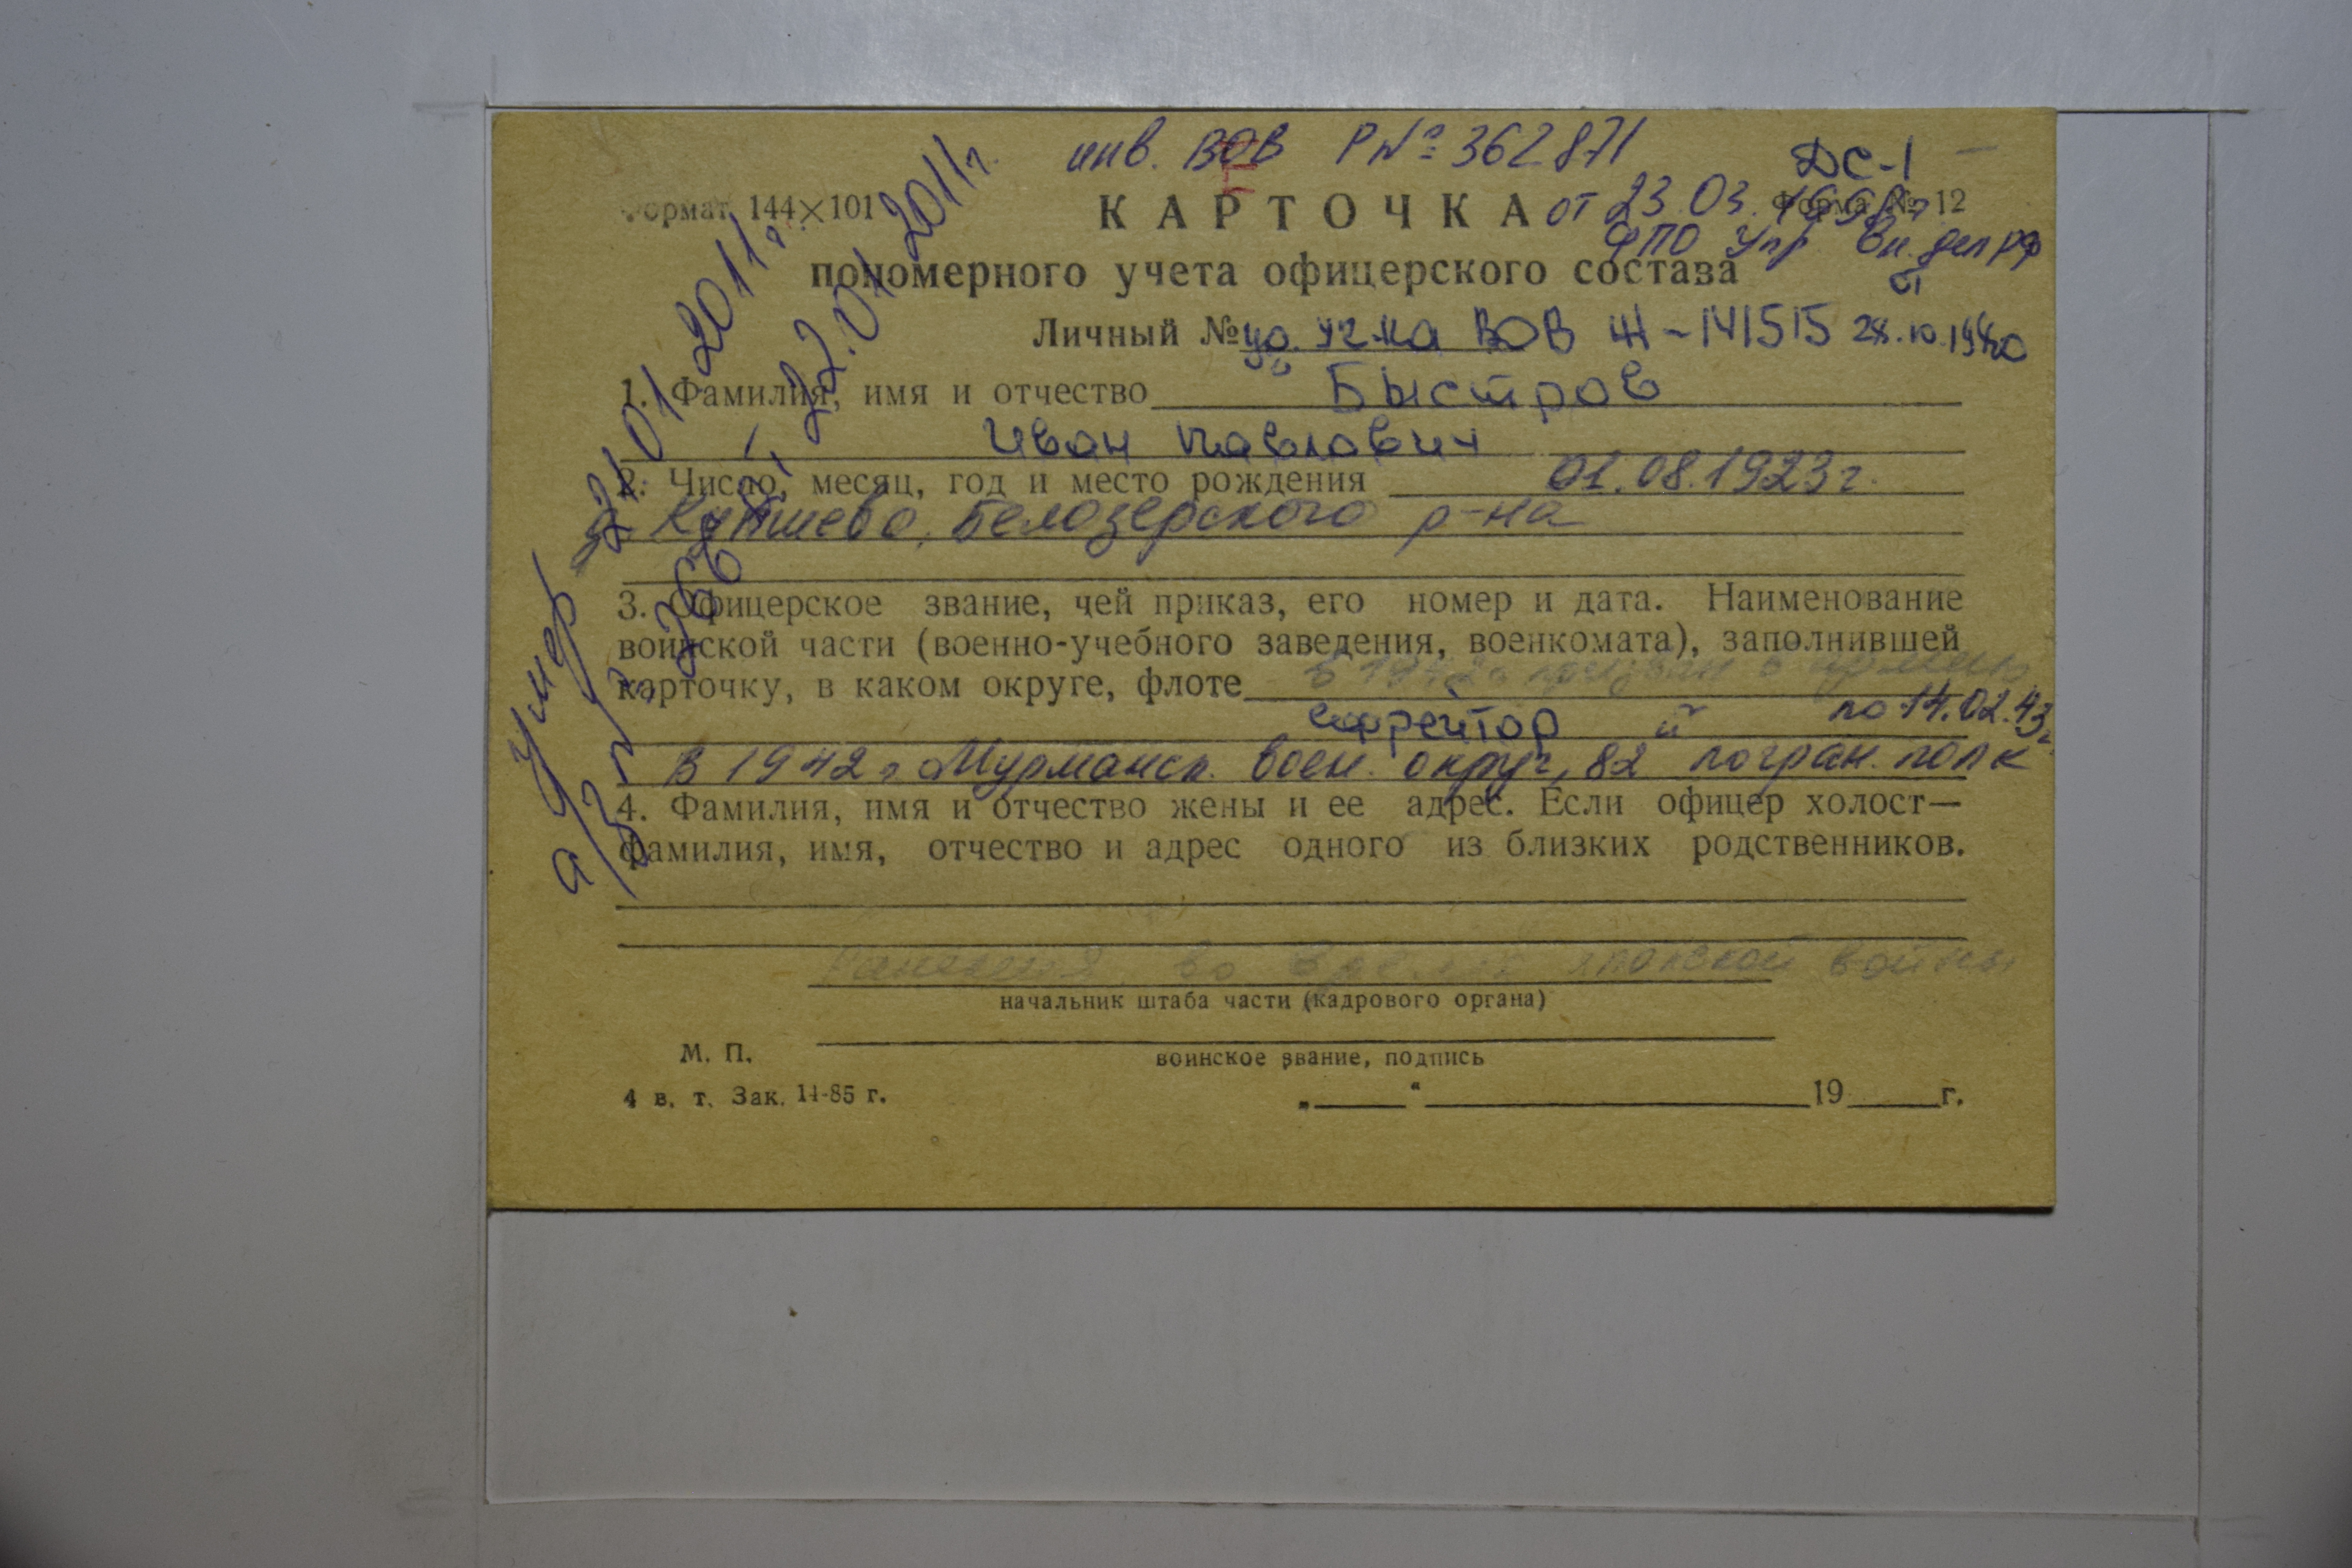 инв. ВОВ Р№ 362871
ДС-1
Формат 144×101
КАРТОЧКА
от 23.03.
Форма № 12
ФПО Упр Вн. дел РФ
пономерного учета офицерского состава
Личный № уд. уч-ка ВОВ Ж-141515 28.10.1980
1. Фамилия, имя и отчество Быстров
Иван Павлович
2. Число, месяц, год и место рождения 01.08.1923г.
Белозерского р-на
3. Офицерское звание, чей приказ, его номер и дата. Наименование
воинской части (военно-учебного заведения, военкомата), заполнившей
карточку, в каком округе, флоте в 1942г призван в армию
ефрейтор по 14.02.43г
В 1942г Мурманск. воен. округ, 82 погран. полк
4. Фамилия, имя и отчество жены и ее адрес. Если офицер холост—
фамилия, имя, отчество и адрес одного из близких родственников.
Ранения во время японской войны
начальник штаба части (кадрового органа)
М. П.
воинское звание, подпись
4 в. т. Зак. 14-85 г.
„ “ 19 г.
Умер 21.01.2011г.
22.01.2011г.